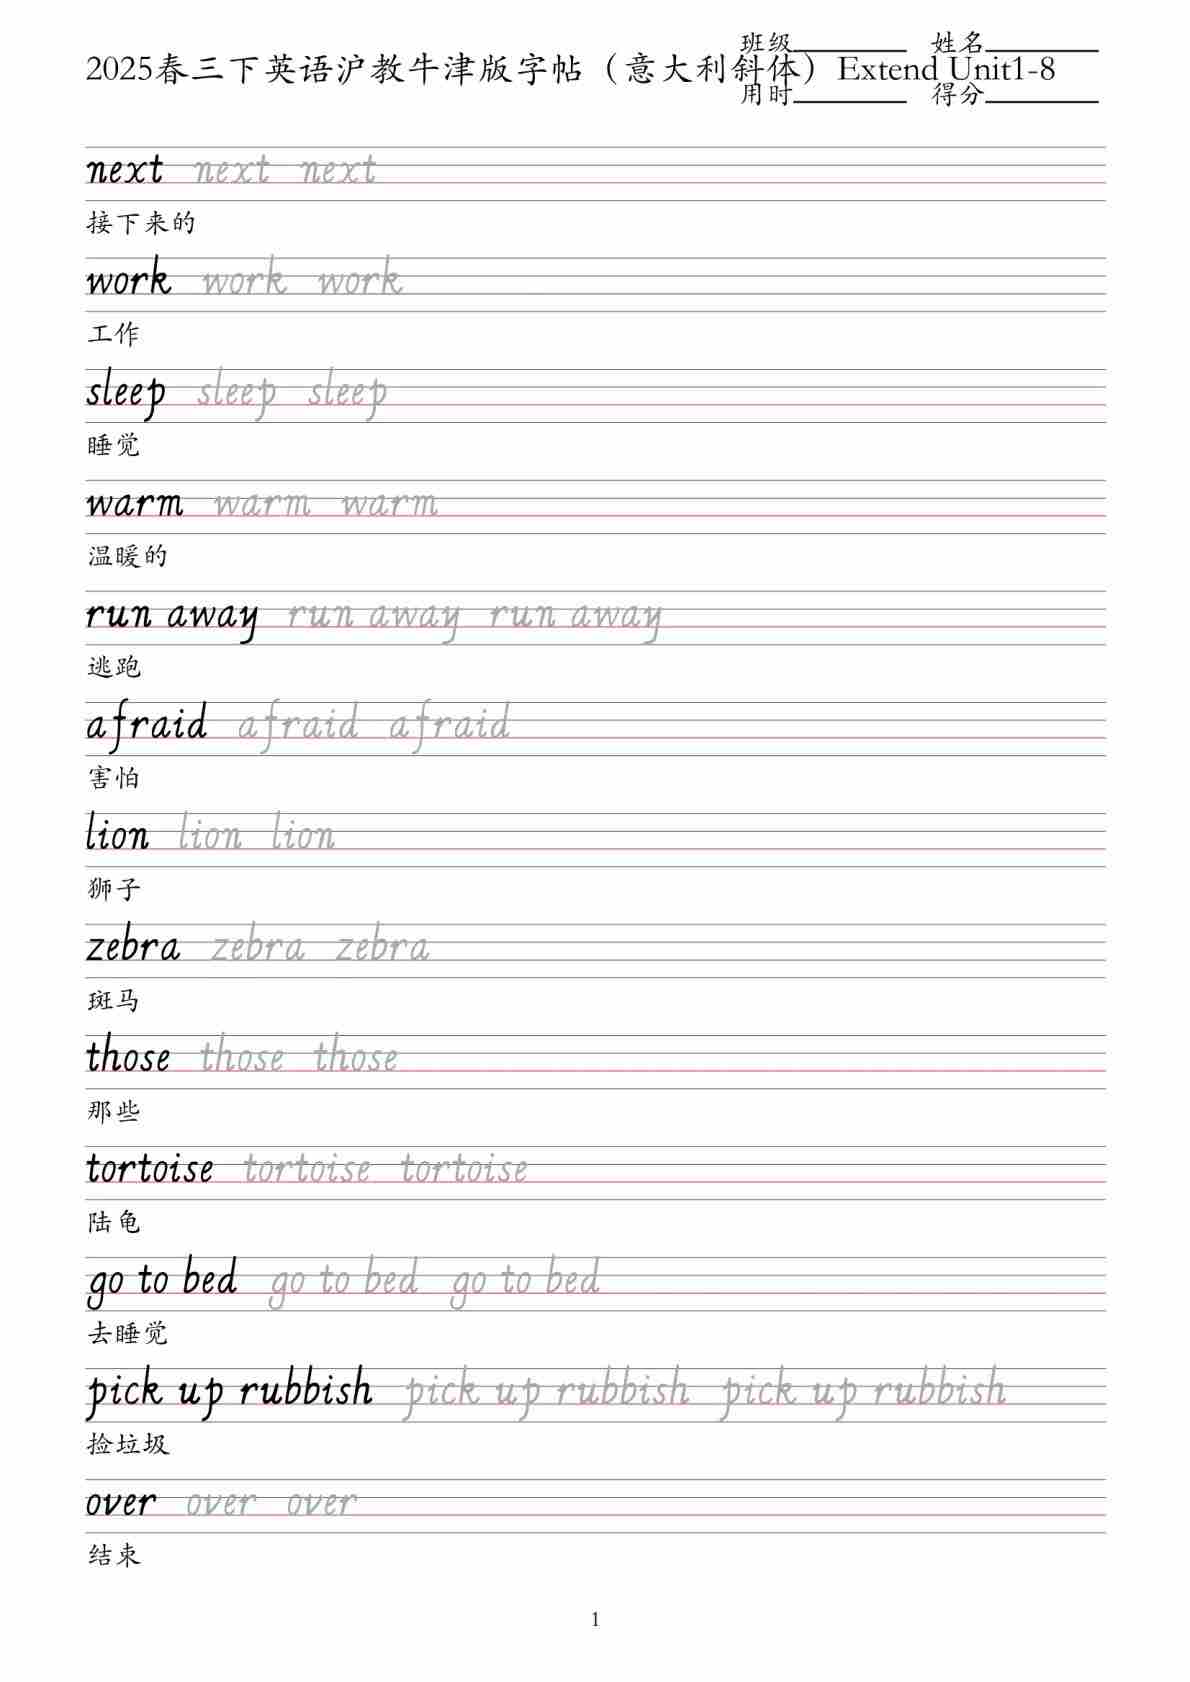 班级 姓名
2025春三下英语沪教牛津版字帖（意大利斜体）Extend Unit1-8
用时 得分
next next next
接下来的
work work work
工作
sleep sleep sleep
睡觉
warm warm warm
温暖的
run away run away run away
逃跑
afraid afraid afraid
害怕
lion lion lion
狮子
zebra zebra zebra
斑马
those those those
那些
tortoise tortoise tortoise
陆龟
go to bed go to bed go to bed
去睡觉
pick up rubbish pick up rubbish pick up rubbish
捡垃圾
over over over
结束
1